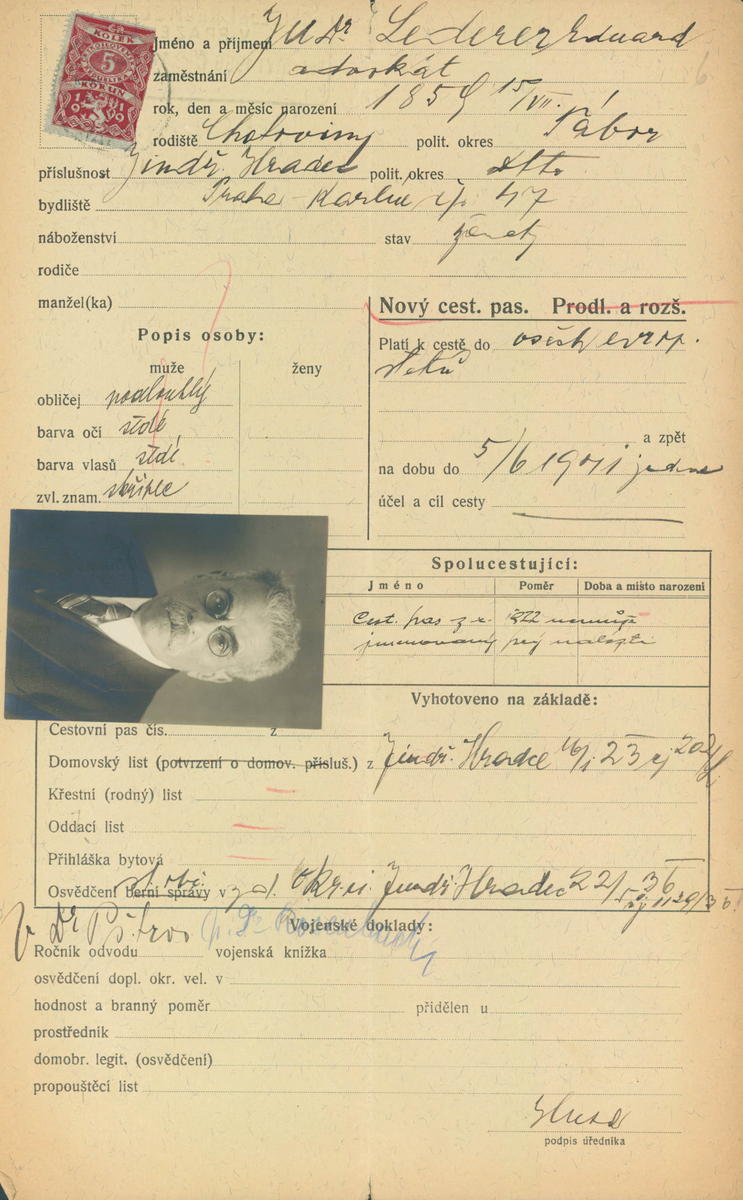 KOLEK
ČESKOSLOVENSKÁ
REPUBLIKA
5
KORUN
Jméno a příjmení JUDr Lederer Eduard
zaměstnání advokát
rok, den a měsíc narození 1859 15/VII.
rodiště Chotoviny polit. okres Tábor
příslušnost Jindř. Hradec polit. okres dtto
bydliště Praha-Karlín čp. 47
náboženství stav ženatý
rodiče
manžel(ka)
Nový cest. pas. Prodl. a rozš.
Popis osoby:
muže ženy
Platí k cestě do všech evrop.
států
obličej podlouhlý
barva očí šedé
barva vlasů šedé
zvl. znam. skřipec
a zpět
na dobu do 5/6 1941
účel a cíl cesty
Spolucestující:
Jméno Poměr Doba a místo narození
Cest. pas z r. 1922 nemůže
jmenovaný prý nalézti
Vyhotoveno na základě:
Cestovní pas čís. z
Domovský list (potvrzení o domov. přísluš.) z Jindř. Hradce 16/I 23 čj
Křestní (rodný) list
Oddací list
Přihláška bytová
Osvědčení berní správy v Jindř. Hradec 22/5 36
Dr
Vojenské doklady:
Ročník odvodu vojenská knížka
osvědčení dopl. okr. vel. v
hodnost a branný poměr přidělen u
prostředník
domobr. legit. (osvědčení)
propouštěcí list
podpis úředníka